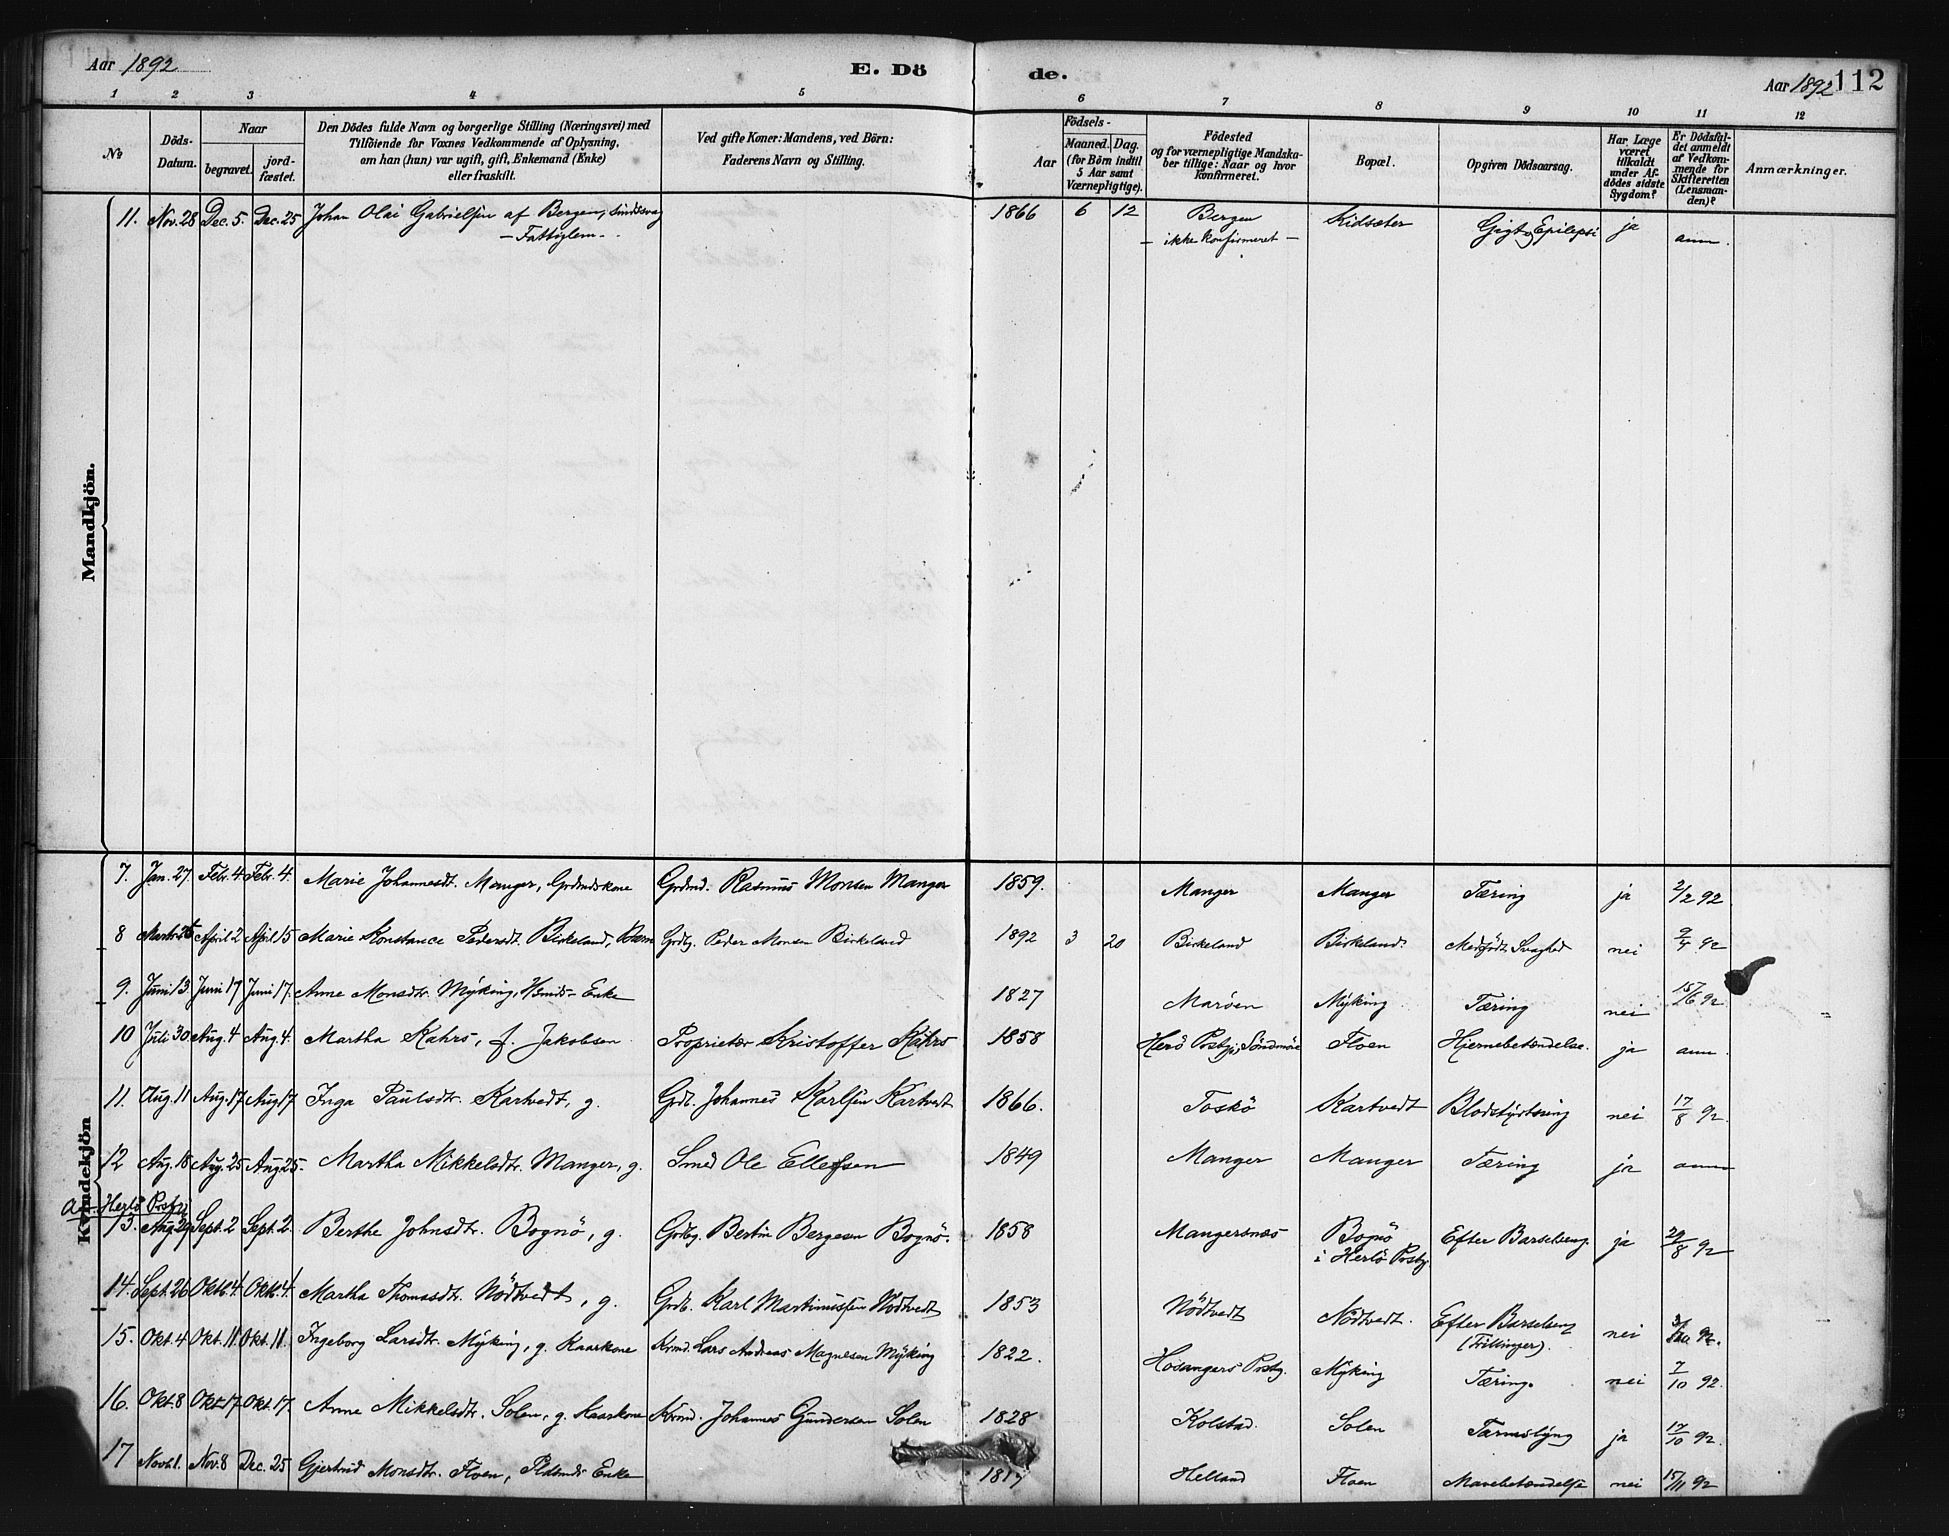 Aar 1892 E. Dö de. Aar 1892 112
1 2 3 4 5 6 7 8 9 10 11 12
№ Döds-Datum. Naar begravet. jordfæstet. Den Dödes fulde Navn og borgerlige Stilling (Næringsvei) med Tilföiende for Voxnes Vedkommende af Oplysning, om han (hun) var ugift, gift, Enkemand (Enke) eller fraskilt. Ved gifte Koner: Mandens, ved Börn: Faderens Navn og Stilling. Födsels- Aar Maaned. Dag. (for Börn indtil 5 Aar samt Værnepligtige). Födested og for værnepligtige Mandskaber tillige: Naar og hvor konfirmeret. Bopæl. Opgiven Dödsaarsag. Har Læge været tilkaldt under Afdödes sidste Sygdom? Er Dödsfaldet anmeldt af Vedkommende for Skifteretten (Lensmanden)? Anmærkninger.
Mandkjön.
11. Nov. 28 Dec. 5. Dec. 25 Johan Olai Gabrielsen af Bergen, sindssvag 1866 6 12 Bergen Kidsæter Gigt og Epilepsi ja anm.
— Fattiglem — — ikke konfirmeret —
Kvindekjön
7. Jan. 27. Febr. 4 Febr. 4. Marie Johannesdt. Manger, Grdmdskone Grdmd. Rasmus Monsen Manger 1859. Manger Manger Tæring ja 2/2 92
8 April 2 April 15 Marie Konstance Pedersdt. Birkeland, Barn Grdbg. Peder Monsen Birkeland 1892 3 20 Birkeland Birkeland Medfödt Svaghed nei 9/4 92
9. Juni 13. Juni 17 Juni 17. Anne Monsdtr. Myking, Enke 1827 Maröen Myking Tæring nei 15/6 92
10 Juli 30 Aug. 4 Aug. 4. Martha Kahrs, f. Jakobsen Proprietær Kristoffer Kahrs 1858 Herö Prstgj. Söndmöre Floen Hjernebetændelse. ja anm.
11. Aug. 11 Aug. 17 Aug. 17 Inga Paulsdtr. Kartvedt, g. Grdb. Johannes Karlsen Kartvedt 1866. Toskö Kartvedt nei 17/8 92
12 Aug. 18 Aug. 25 Aug 25. Martha Mikkelsdtr. Manger, g. Smed Ole Ellefsen 1849 Manger Manger Tæring ja anm
Herlö Prstgj
13. Aug. 29 Sept. 2 Sept. 2. Berthe Johnsdtr. Bognö, g. Grdbg. Bertin Bergesen Bognö. 1858 Mangersnæs Bognö Efter Barselseng. ja 29/8 92
i Herlö Prstgj
14. Sept. 26 Oktb. 4 Oktb. 4. Martha Thomasdtr. Nödtvedt, g. Grdb. Karl Martinussen Nödtvedt 1853 Nödtvedt Nödtvedt. Efter Barselseng nei
(Trillinger).
15. Okt. 4 Okt. 11. Okt. 11. Ingeborg Larsdtr. Myking, g. Kaarkone Krmd. Lars Andreas Magnesen Myking 1822. Hosangers Prstgj. Myking Tæring. nei 7/10 92.
16. Okt. 8 Okt 17 Okt. 17. Anne Mikkelsdtr. Solen, g. Kaarkone Krmd. Johannes Gundersen Solen 1828 Kolstad. Solen Tarmslyng ja 17/10 92.
17 Novb. 1. Nov. 8 Dec. 25 Gjertrud Monsdtr. Floen, Enke 1817 Helland Floen Mavebetændelse nei 15/11 92